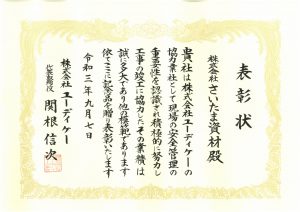 表彰状
株式会社 さいたま資材殿
貴社は株式会社ユーディケーの
協力業社として現場の安全管理の
重要性を認識され積極的に努力し
工事の竣工に協力したその業績は
誠に多大であり他の模範であります
依てここに記念品を贈り表彰いたします
令和三年九月七日
株式会社ユーディケー
代表取締役 関根信次